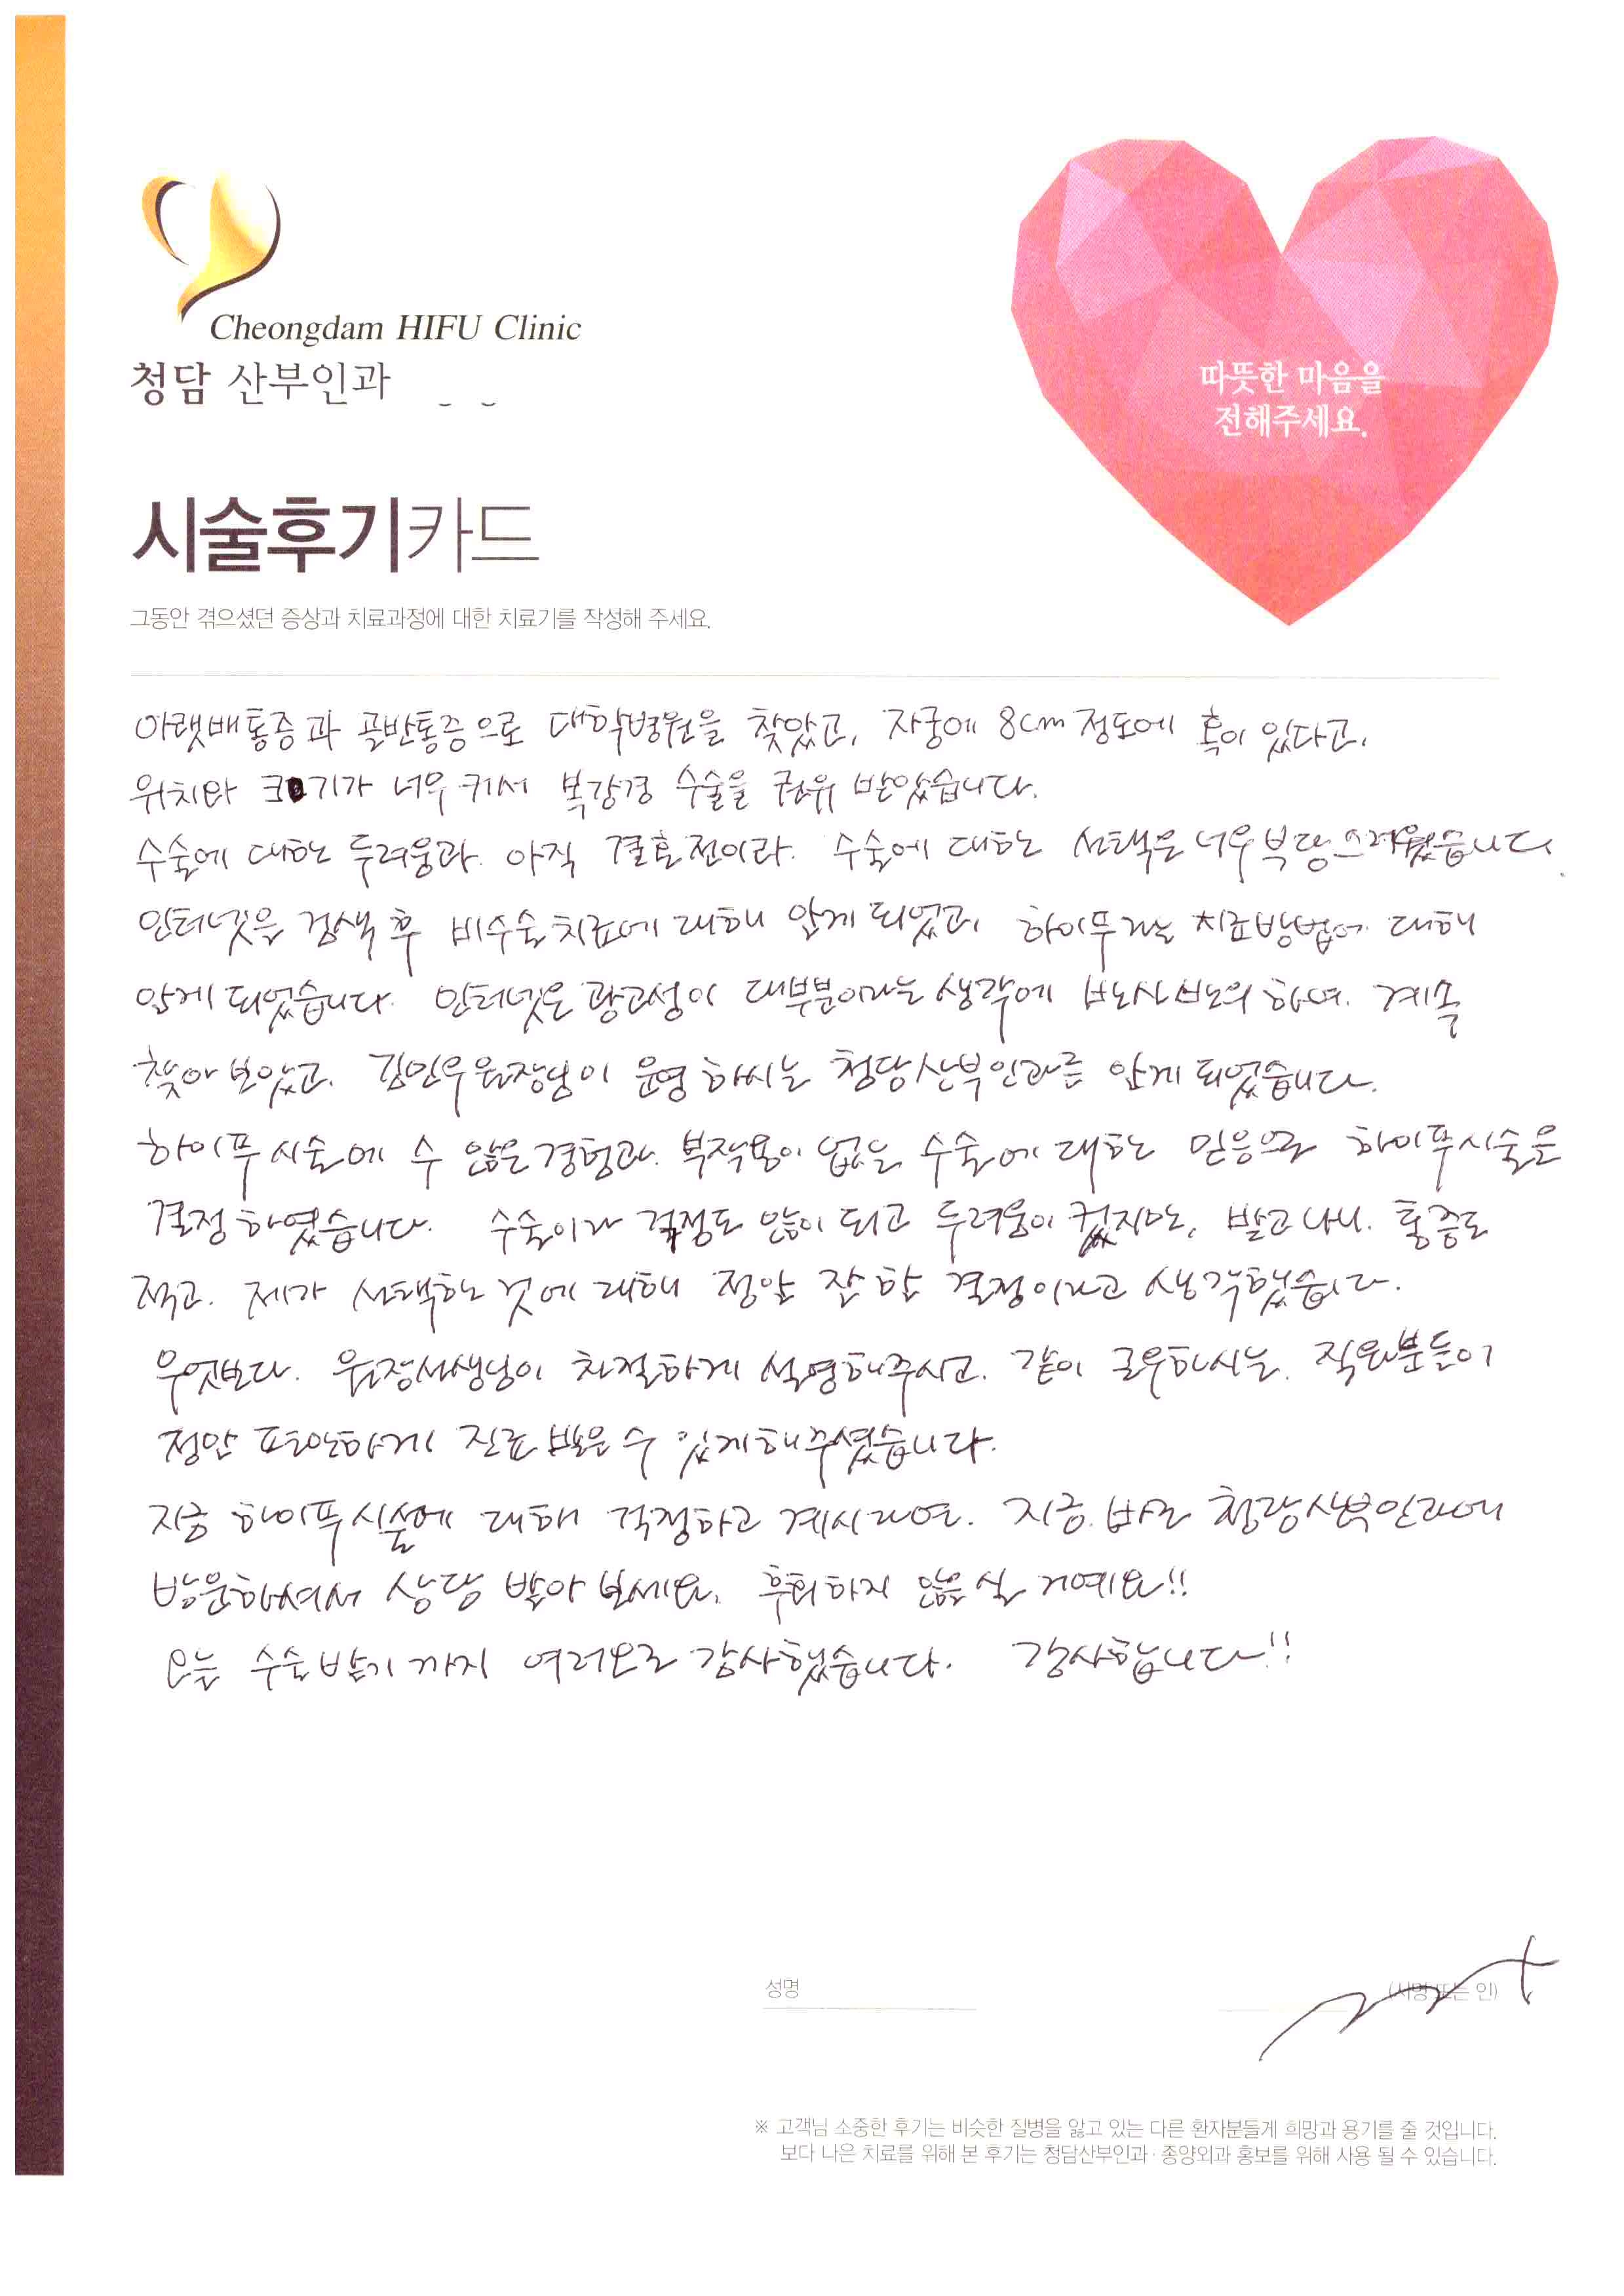 Cheongdam HIFU Clinic
청담 산부인과
따뜻한 마음을
전해주세요.
시술후기카드
그동안 겪으셨던 증상과 치료과정에 대한 치료기를 작성해 주세요.
아랫배통증과 골반통증으로 대학병원을 찾았고, 자궁에 8cm 정도에 혹이 있다고,
위치와 크기가 너무 커서 복강경 수술을 권유 받았습니다.
수술에 대한 두려움과. 아직 결혼전이라. 수술에 대한 선택은 너무 부담스러웠습니다.
인터넷을 검색 후 비수술치료에 대해 알게 되었고, 하이푸라는 치료방법에 대해
알게 되었습니다. 인터넷은 광고성이 대부분이라는 생각에 반신반의 하여. 계속
찾아 보았고. 김민우원장님이 운영하시는 청담산부인과를 알게 되었습니다.
하이푸시술에 수 많은 경험과. 부작용이 없는 수술에 대한 믿음으로 하이푸시술을
결정하였습니다. 수술이라 걱정도 많이 되고 두려움이 컸지만, 받고 나니. 통증도
적고. 제가 선택한 것에 대해 정말 잘 한 결정이라고 생각했습니다.
무엇보다. 원장선생님이 친절하게 설명해주시고. 같이 근무하시는. 직원분들이
정말 편안하게 진료 받을 수 있게해주셨습니다.
지금 하이푸시술에 대해 걱정하고 계시라면. 지금. 바로 청담산부인과에
방문하셔서 상담 받아 보세요. 후회하지 않으실 거예요!!
오늘 수술받기 까지 여러모로 감사했습니다. 감사합니다!!
성명
(서명 또는 인)
※ 고객님 소중한 후기는 비슷한 질병을 앓고 있는 다른 환자분들게 희망과 용기를 줄 것입니다.
보다 나은 치료를 위해 본 후기는 청담산부인과·종양외과 홍보를 위해 사용 될 수 있습니다.